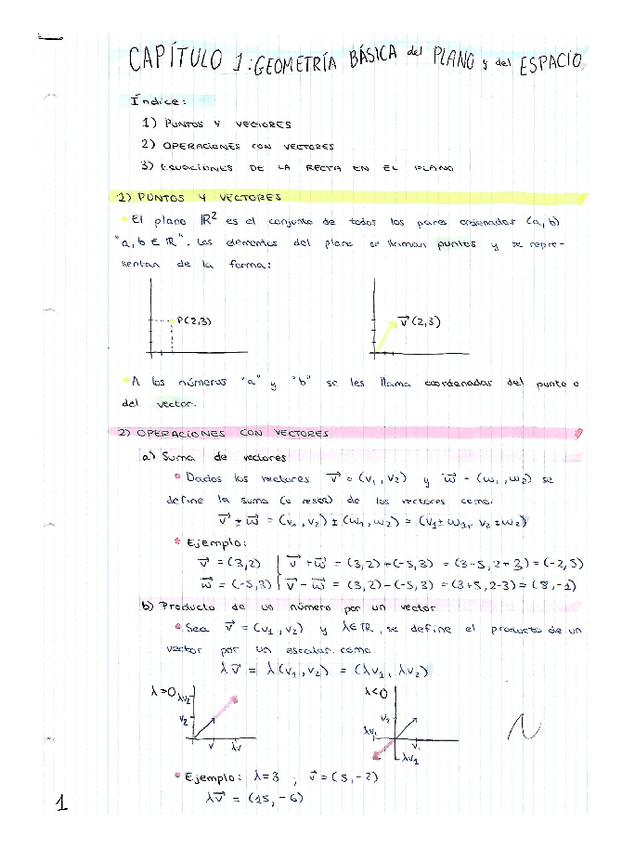 CAPÍTULO 1: GEOMETRÍA BÁSICA del PLANO y del ESPACIO
Índice:
1) PUNTOS Y VECTORES
2) OPERACIONES CON VECTORES
3) ECUACIONES DE LA RECTA EN EL PLANO
1) PUNTOS Y VECTORES
• El plano ℝ² es el conjunto de todos los pares ordenados (a, b)
"a, b ∈ ℝ". Los elementos del plano se llaman puntos y se repre-
sentan de la forma:
P(2,3)
v⃗(2,3)
• A los números "a" y "b" se les llama coordenadas del punto o
del vector.
2) OPERACIONES CON VECTORES
a) Suma de vectores
• Dados los vectores v⃗ = (v₁, v₂) y w⃗ = (w₁, w₂) se
define la suma (o resta) de los vectores como:
v⃗ ± w⃗ = (v₁, v₂) ± (w₁, w₂) = (v₁ ± w₁, v₂ ± w₂)
• Ejemplo:
v⃗ = (3,2) | v⃗ + w⃗ = (3,2) + (-5,3) = (3-5, 2+3) = (-2,5)
w⃗ = (-5,3) | v⃗ - w⃗ = (3,2) - (-5,3) = (3+5, 2-3) = (8,-1)
b) Producto de un número por un vector
• Sea v⃗ = (v₁, v₂) y λ ∈ ℝ, se define el producto de un
vector por un escalar como:
λv⃗ = λ(v₁, v₂) = (λv₁, λv₂)
λ>0 λv₂
v₂
v λv
λ<0
v₂
λv₁ v₁
λv₁
• Ejemplo: λ=3 ; v⃗ = (5,-2)
λv⃗ = (15,-6)
1